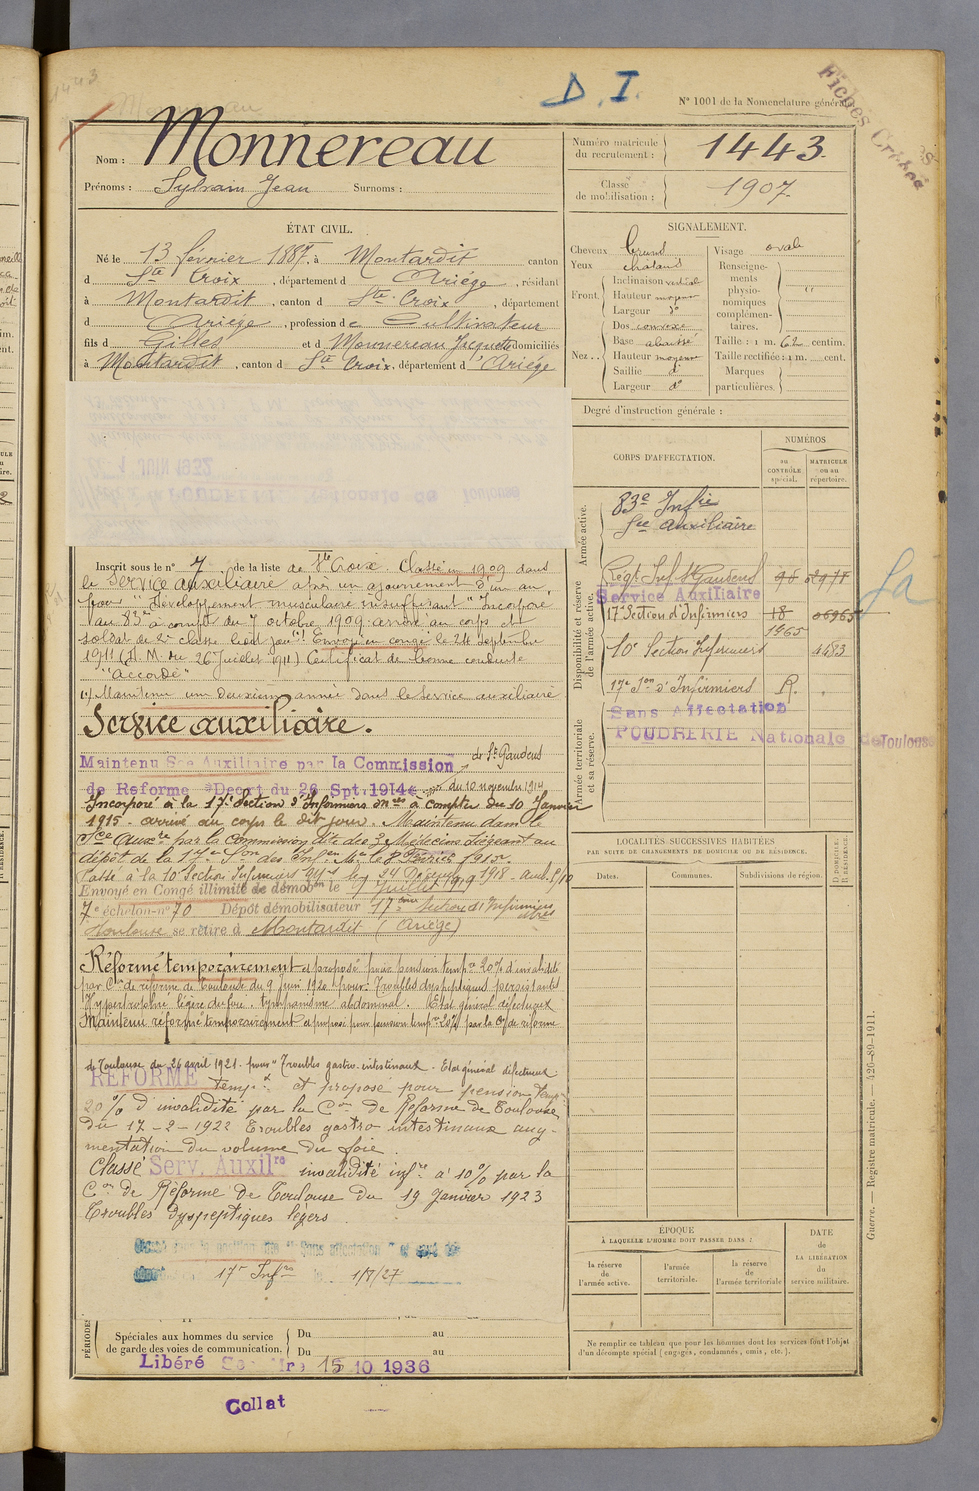 1443
D.I.
N° 1001 de la Nomenclature générale
Fiches
Nom : Monnereau
Prénoms : Sylvain Jean Surnoms :
Numéro matricule du recrutement : 1443.
Classe de mobilisation : 1907.
ÉTAT CIVIL.
Né le 13 février 1887, à Montardit canton
d Ste Croix, département d Ariége, résidant
à Montardit, canton d Ste Croix, département
d Ariége, profession de Cultivateur
fils d Gilles et d Monnereau Jacquette domiciliés
à Montardit, canton d Ste Croix, département d'Ariége
SIGNALEMENT.
Cheveux bruns
Yeux chatains
Front. Inclinaison vertical
Hauteur moyenne
Largeur d°
Nez.. Dos convexe
Base abaissé
Hauteur moyenne
Saillie d°
Largeur d°
Visage ovale
Renseignements physionomiques complémentaires. "
Taille : 1 m. 62 centim.
Taille rectifiée : 1 m. cent.
Marques particulières.
Degré d'instruction générale :
1 JUIN 1932
Inscrit sous le n° 7 de la liste de Ste Croix. Classé en 1909 dans
le Service auxiliaire après un ajournement d'un an,
pour "Développement musculaire insuffisant" Incorporé
au 83e à compter du 7 octobre 1909. arrivé au corps et
soldat de 2e classe le dit jour (1) Envoyé en congé le 24 septembre
1911 (D. M. du 26 Juillet 1911) Certificat de bonne conduite
"Accordé"
(1) Maintenu une deuxième année dans le service auxiliaire
Service auxiliaire.
Maintenu Sce Auxiliaire par la Commission de St Gaudens
de Reforme Décret du 26 Spt. 1914 du 10 novembre 1914
Incorporé à la 17e Section d'Infirmiers mres à compter du 10 Janvier
1915. arrivé au corps le dit jour. Maintenu dans le
Sce Auxre par la Commission dite des 3 Médecins siégeant au
dépôt de la 17e Son des Inf. Mre le 8 Février 1915.
Passé à la 10e Section Infirmiers Mres le 24 Décembre 1918
Envoyé en Congé illimité de démobon le 7 Juillet 1919
7e échelon-n° 70 Dépôt démobilisateur 17e Section d'Infirmiers
Toulouse se retire à Montardit (Ariége)
Réformé temporairement et proposé pour pension tempre 20% d'invalidité
par Con de réforme de Toulouse du 9 Juin 1920 pour. Troubles dyspeptiques persistants
Hypertrophie légère du foie. tympanisme abdominal. Etat général défectueux
Maintenu réformé temporairement et proposé pour pension tempre 20% par la Con de réforme
de Toulouse du 26 avril 1921. pour "Troubles gastro-intestinaux. Etat général défectueux
REFORMÉ temp. et proposé pour pension temp.
20% d'invalidité par la Con de Réforme de Toulouse
du 17-2-1922 Troubles gastro intestinaux aug-
mentation du volume du foie.
Classé Serv. Auxilre invalidité infre à 10% par la
Con de Réforme de Toulouse du 19 Janvier 1923
Troubles dyspeptiques légers.
Classé dans la position dite "Sans affectation"
17e Infres le 1/8/27
PÉRIODES
Spéciales aux hommes du service de garde des voies de communication.
Du au
Du au
Libéré 15 10 1936
Collat
CORPS D'AFFECTATION.
NUMÉROS
au CONTRÔLE spécial.
MATRICULE ou au répertoire.
Armée active.
83e Infie
Sce auxiliaire
Disponibilité et réserve de l'armée active.
Régt Inf. St Gaudens
Service Auxiliaire
17e Section d'Infirmiers 18
1965
10e Section Infirmiers 4483
17e Son d'Infirmiers R.
Armée territoriale et sa réserve.
Sans Affectation
POUDRERIE Nationale de Toulouse
LOCALITÉS SUCCESSIVES HABITÉES
PAR SUITE DE CHANGEMENTS DE DOMICILE OU DE RÉSIDENCE.
Dates. Communes. Subdivisions de région. D DOMICILE. R RÉSIDENCE.
ÉPOQUE
À LAQUELLE L'HOMME DOIT PASSER DANS :
la réserve de l'armée active. l'armée territoriale. la réserve de l'armée territoriale
DATE de LA LIBÉRATION du service militaire.
Ne remplir ce tableau que pour les hommes dont les services font l'objet
d'un décompte spécial (engagés, condamnés, omis, etc.).
Guerre. — Registre matricule. — 426-89-1911.